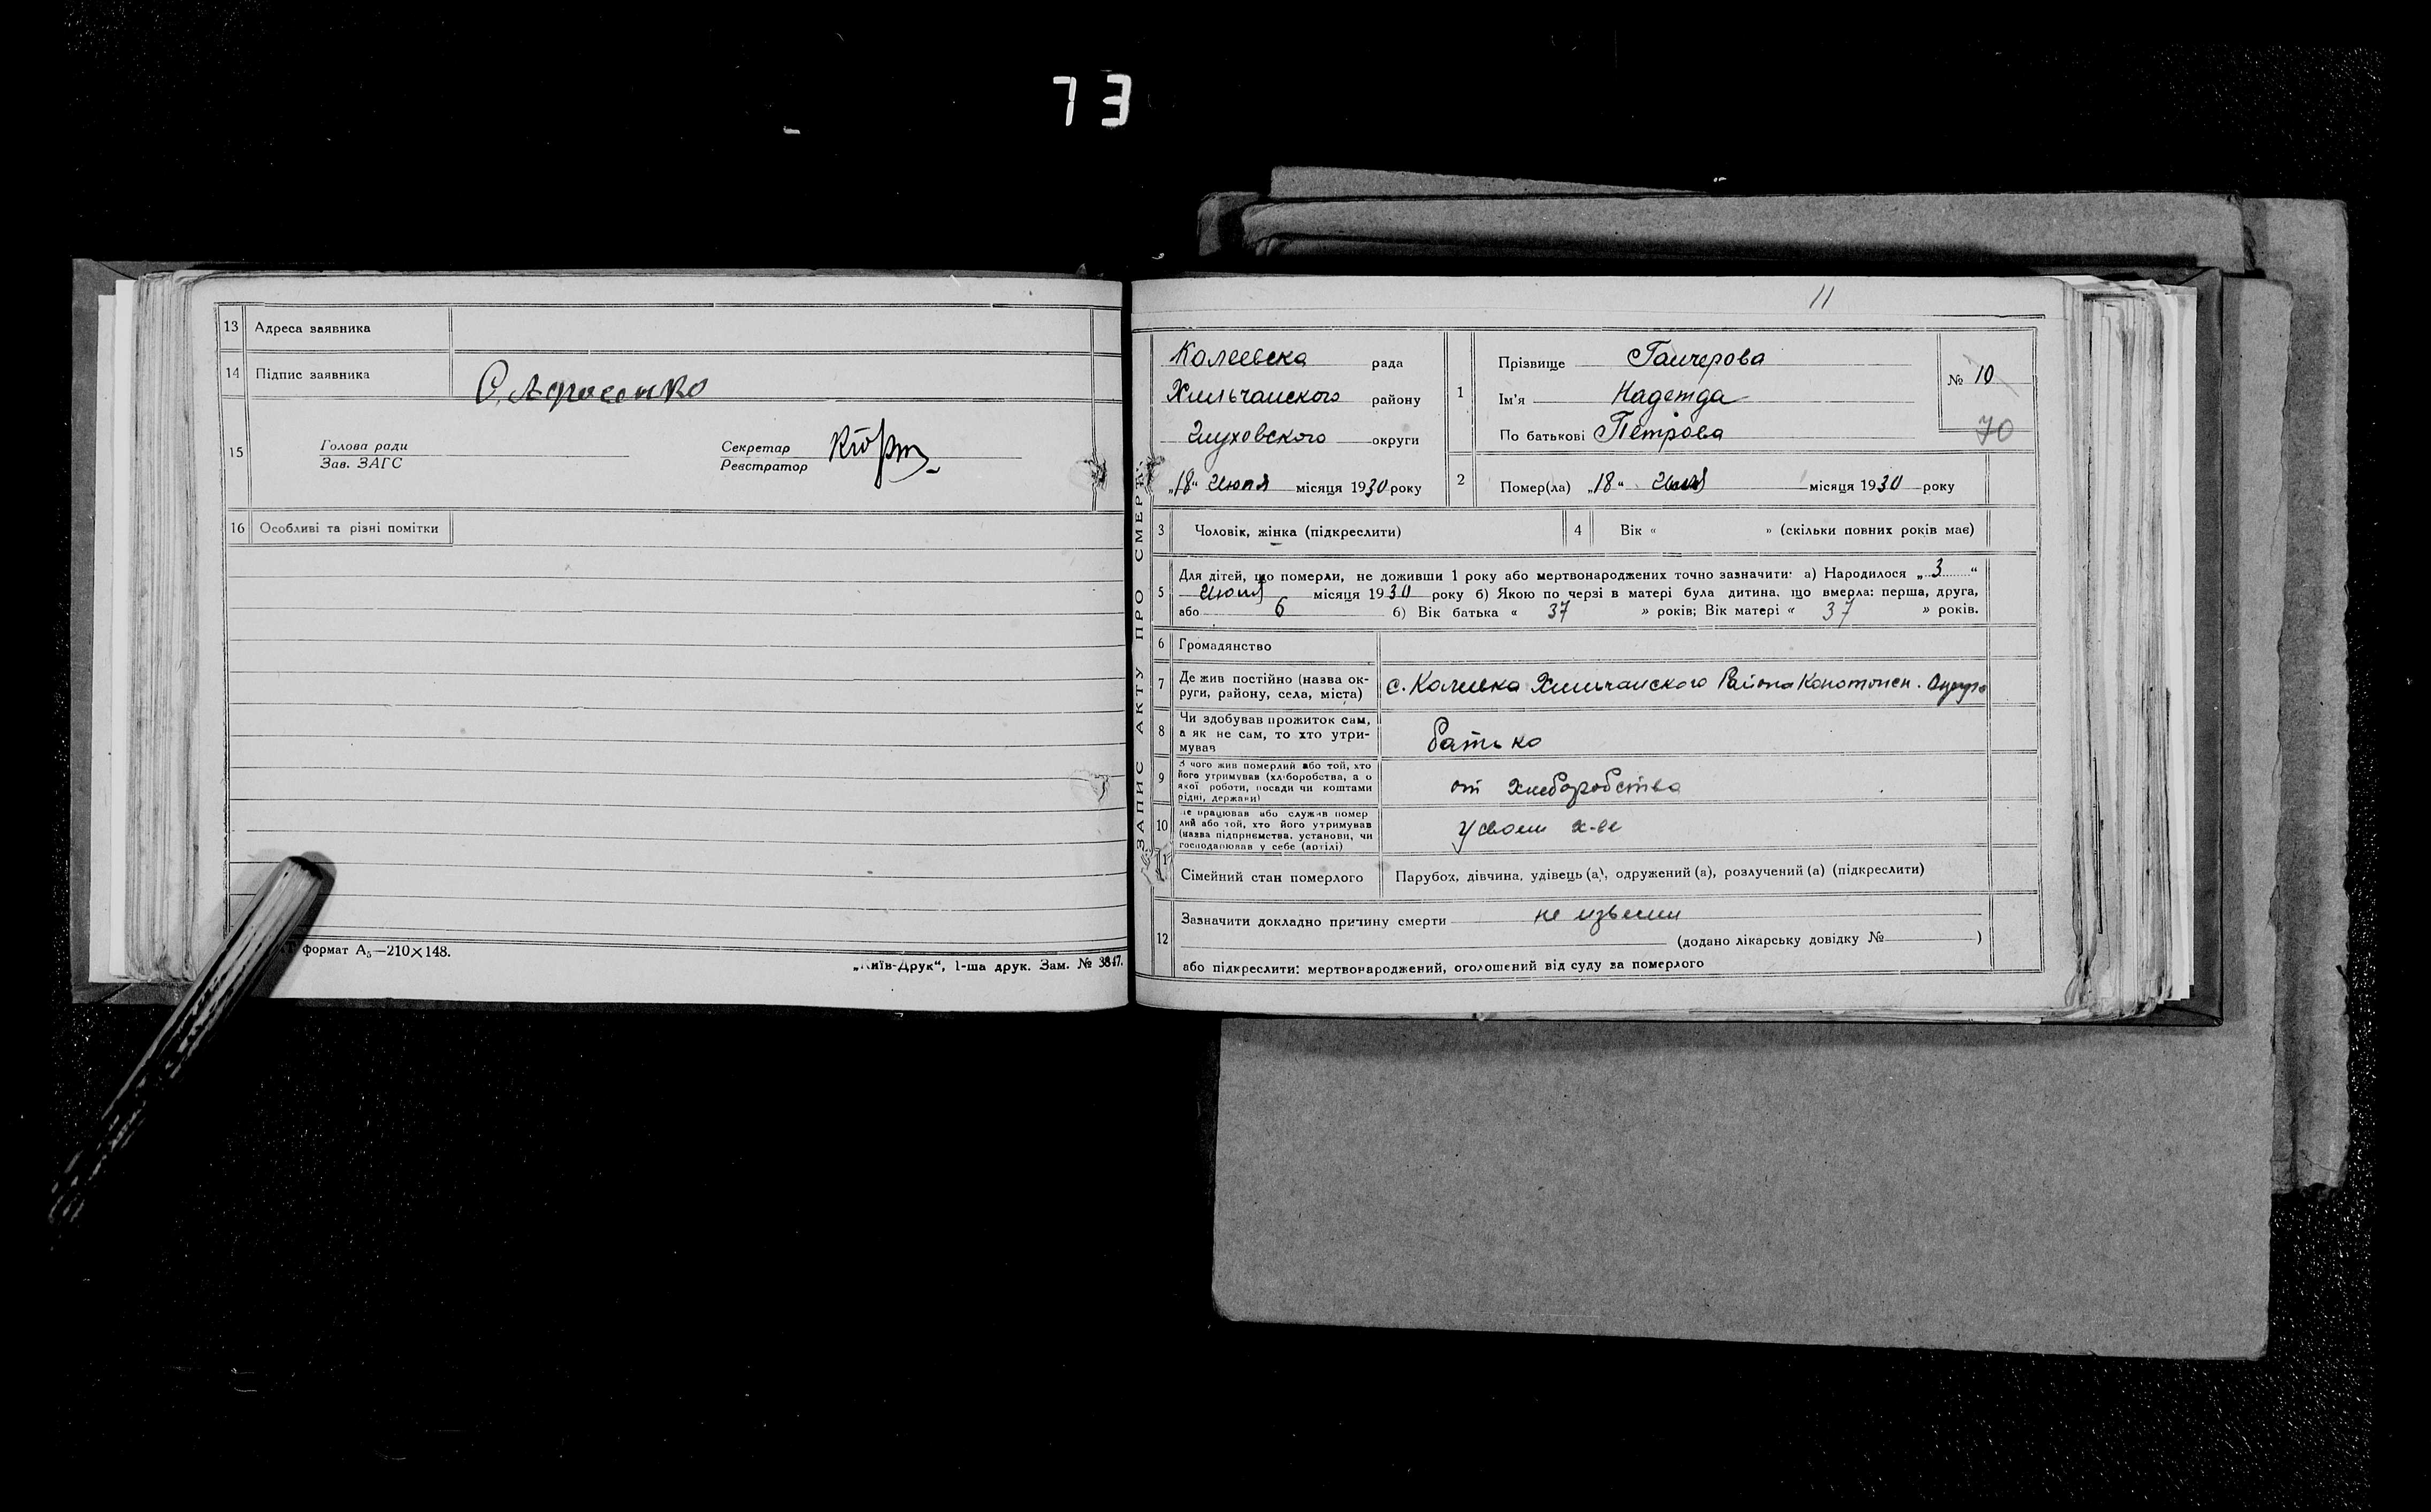 73
13 Адреса заявника
14 Підпис заявника
15 Голова ради
Зав. ЗАГС
Секретар
Реєстратор
16 Особливі та різні помітки
формат А5—210×148.
„Київ-Друк“, 1-ша друк. Зам. № 3847.
11
ЗАПИС АКТУ ПРО СМЕРТЬ
рада
Хильчанского району
Глуховского округи
„18“ Июля місяця 1930 року
1 Прізвище
Ім'я Надежда
По батькові Петрова
№ 10
70
2 Помер(ла) „18“ Июля місяця 1930 року
3 Чоловік, жінка (підкреслити)
4 Вік « » (скільки повних років має)
5 Для дітей, що померли, не доживши 1 року або мертвонароджених точно зазначити: а) Народилося „3“
Июля місяця 1930 року б) Якою по черзі в матері була дитина, що вмерла: перша, друга,
або 6 б) Вік батька « 37 » років; Вік матері « 37 » років.
6 Громадянство
7 Де жив постійно (назва ок-
руги, району, села, міста)
с. Хильчанского Района Конотопск. Округа
8 Чи здобував прожиток сам,
а як не сам, то хто утри-
мував
батько
9 З чого жив померлий або той, хто
його утримував (хліборобства, а о
якої роботи, посади чи коштами
рідні, держави)
от хлеборобства
10 Де працював або служив помер
лий або той, хто його утримував
(назва підприємства, установи, чи
господарював у себе (артілі)
у своем х-ве
11 Сімейний стан померлого
Парубок, дівчина, удівець (а), одружений (а), розлучений (а) (підкреслити)
12 Зазначити докладно причину смерти не
(додано лікарську довідку № )
або підкреслити: мертвонароджений, оголошений від суду за померлого